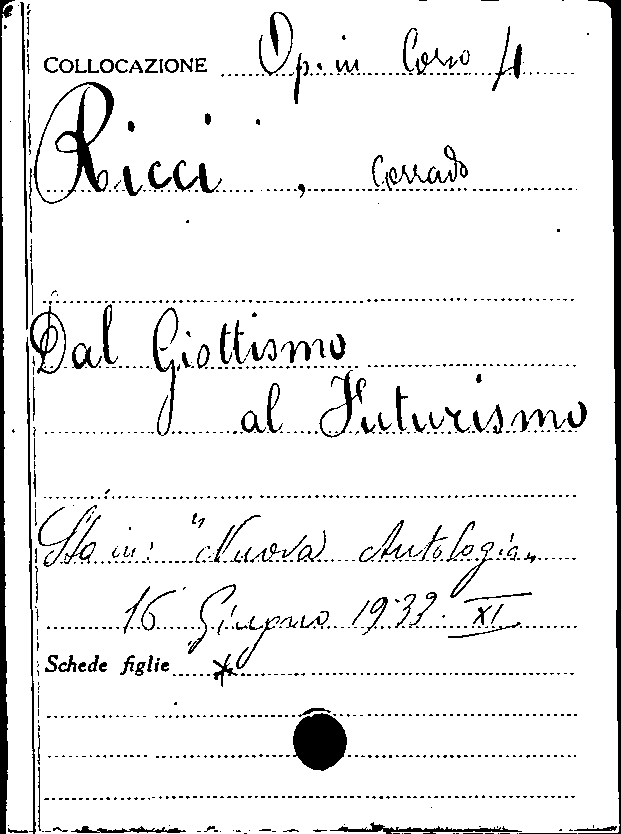 COLLOCAZIONE Op. in Corso 4
Ricci, Corrado
Dal Giottismo
al Futurismo
Sta in: "Nuova Antologia„
16 Giugno 1933. XI
Schede figlie *